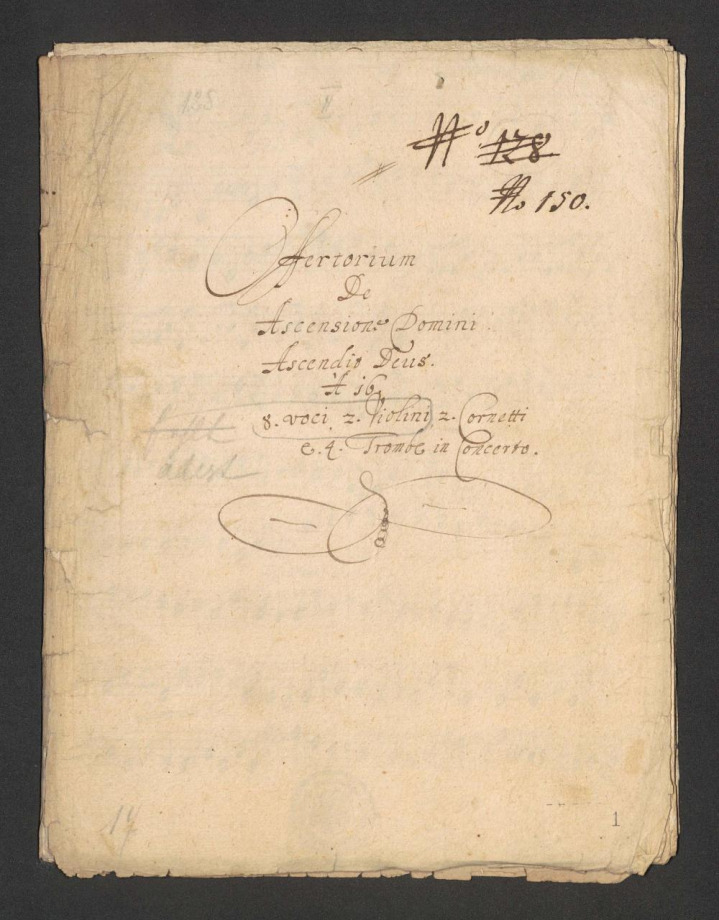 135
II
No 128
No 150.
Offertorium
De
Ascensione Domini
Ascendit Deus.
A 16
8. voci, 2. Violini, 2. Cornetti
e. 4. Trombe in Concerto.
adest
14
1